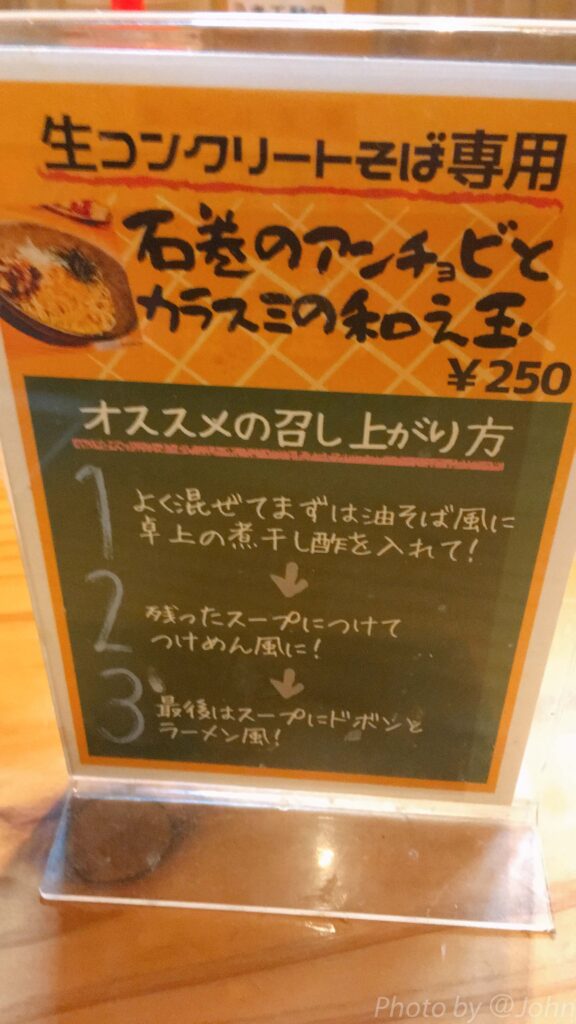 生コンクリートそば専用
石巻のアンチョビと
カラスミの和え玉
¥250
オススメの召し上がり方
1
よく混ぜてまずは油そば風に
卓上の煮干し酢を入れて!
2
残ったスープにつけて
つけめん風に!
3
最後はスープにドボンと
ラーメン風!
Photo by @John